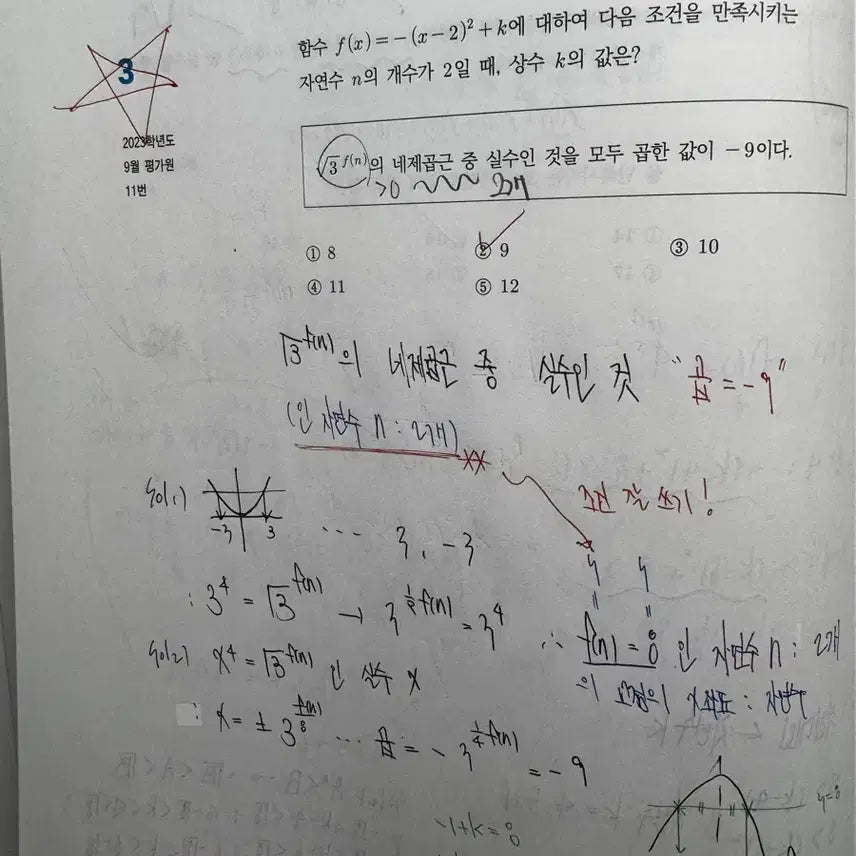 3
2023학년도
9월 평가원
11번
함수 f(x)=-(x-2)²+k에 대하여 다음 조건을 만족시키는
자연수 n의 개수가 2일 때, 상수 k의 값은?
√3^f(n)의 네제곱근 중 실수인 것을 모두 곱한 값이 -9이다.
>0 2개
① 8 ② 9 ③ 10
④ 11 ⑤ 12
√3^f(n)의 네제곱근 중 실수인 것 "곱 = -9"
(인 자연수 n : 2개)
조건 잘 쓰기!
풀이1)
-3 3 ... 3, -3
: 3⁴ = √3^f(n) → 3^(½f(n)) = 3⁴
y y
" "
∴ f(n) = 8 인 자연수 n : 2개
풀이2) x⁴ = √3^f(n) 인 실수 x
의 교점의 x좌표 : 자연수
: x = ± 3^(f(n)/8) ... 곱 = - 3^(¼f(n)) = -9
y=8
-1+k=8